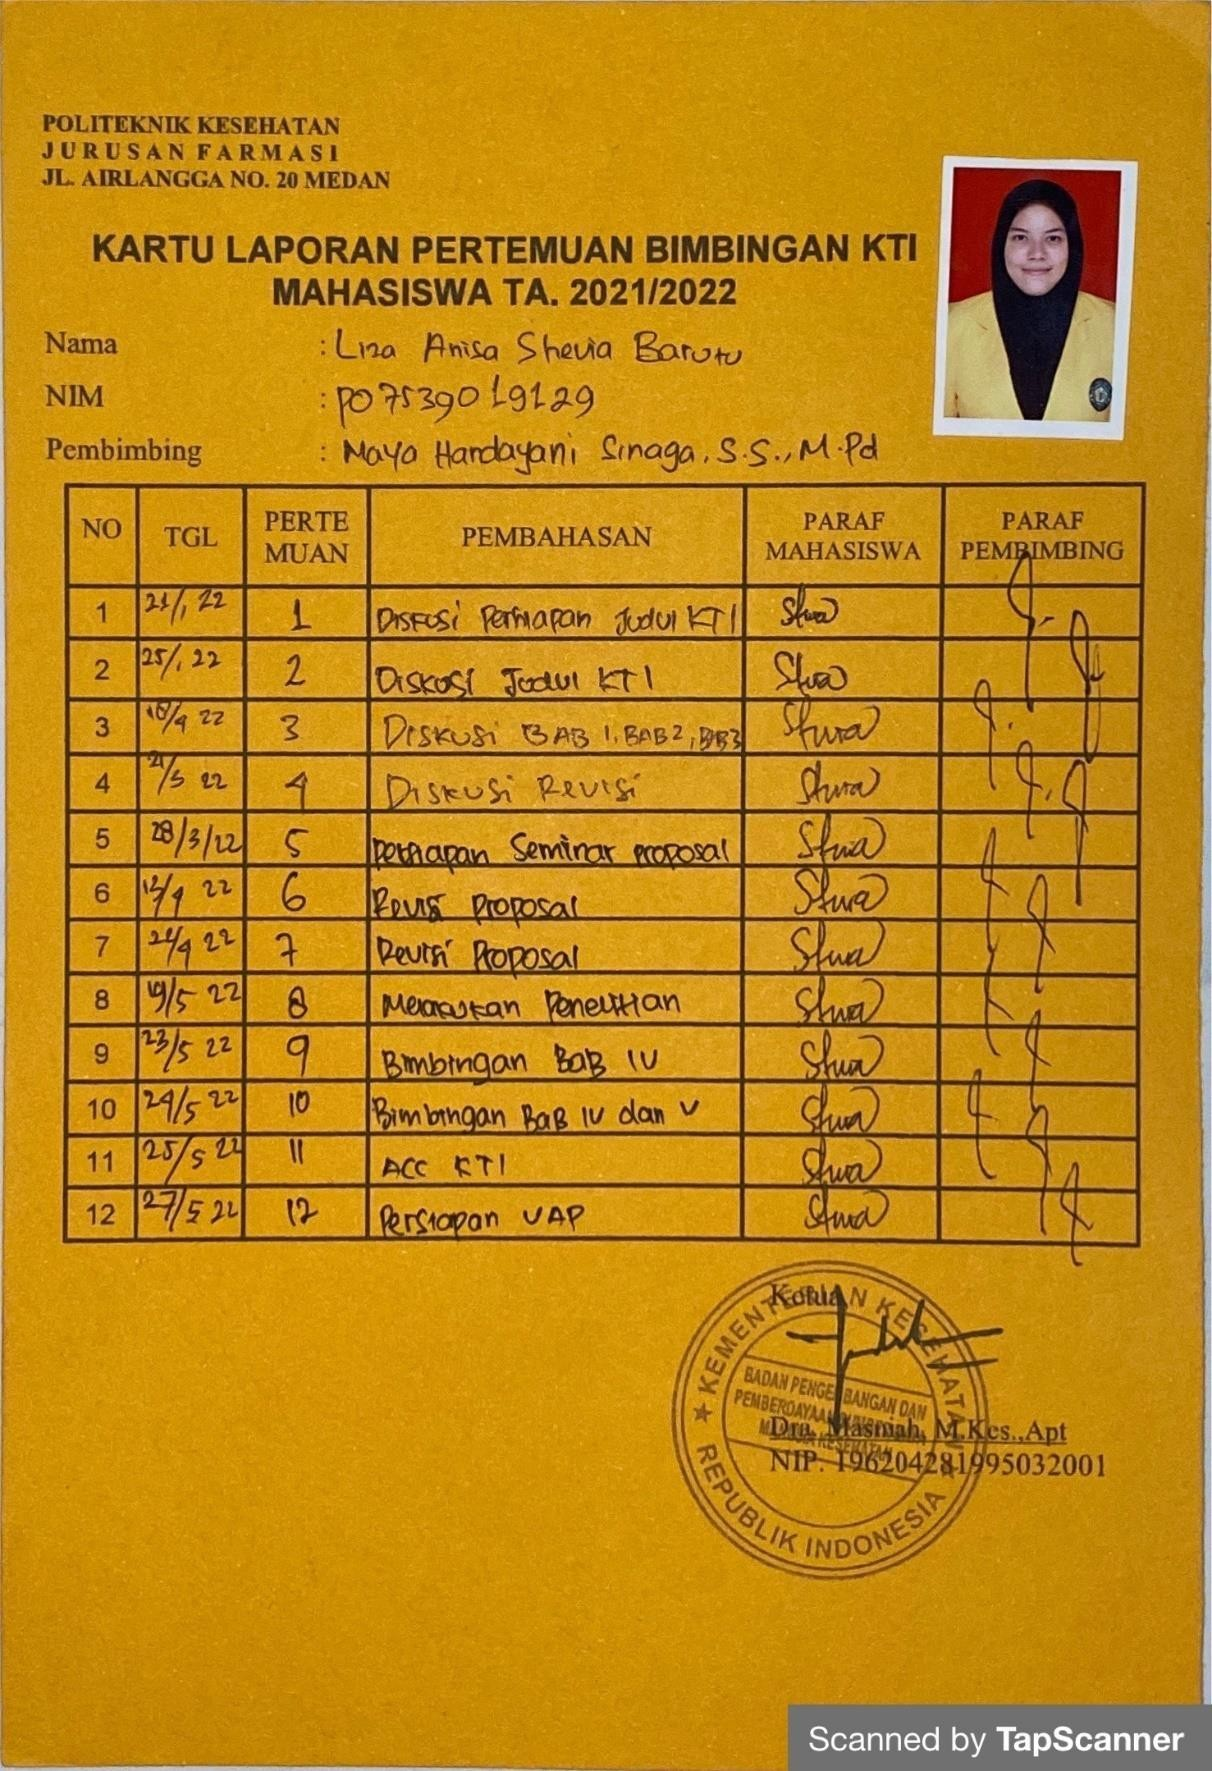 POLITEKNIK KESEHATAN
JURUSAN FARMASI
JL. AIRLANGGA NO. 20 MEDAN
KARTU LAPORAN PERTEMUAN BIMBINGAN KTI
MAHASISWA TA. 2021/2022
Nama : Liza Anisa Shevia Barutu
NIM : P07539019129
Pembimbing : Maya Handayani Sinaga, S.S., M.Pd
NO TGL PERTE MUAN PEMBAHASAN PARAF MAHASISWA PARAF PEMBIMBING
1 21/1 22 1 Diskusi Persiapan Judul KTI
2 25/1 22 2 Diskusi Judul KTI
3 22 3 Diskusi BAB 1, BAB 2, BAB 3
4 22 4 Diskusi Revisi
5 28/3/22 5 Persiapan Seminar Proposal
6 22 6 Revisi Proposal
7 22 7 Revisi Proposal
8 19/5 22 8 Melakukan Penelitian
9 23/5 22 9 Bimbingan BaB IV
10 24/5 22 10 Bimbingan BaB IV dan V
11 25/5 22 11 ACC KTI
12 27/5 22 12 Persiapan UAP
Ketua
KEMENTERIAN KESEHATAN
BADAN PENGEMBANGAN DAN
PEMBERDAYAAN
Dra. Masniah, M.Kes.,Apt
NIP. 196204281995032001
REPUBLIK INDONESIA
Scanned by TapScanner